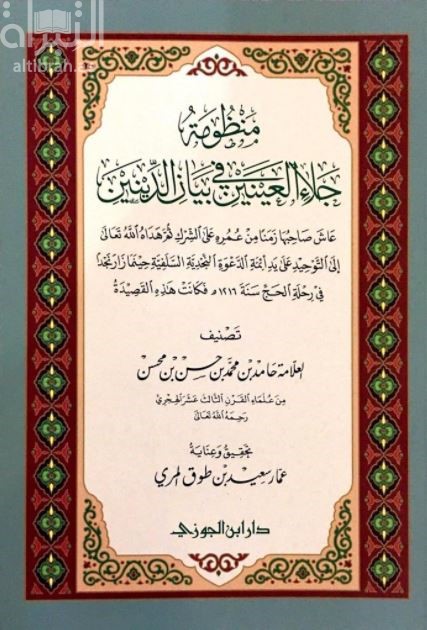 التبراة
altibrah.ae
منظومة
جلاء العينين في بيان الدينين
عاش صاحبها زمنا من عمره على الشرك ثم هداه الله تعالى
إلى التوحيد على يد أئمة الدعوة النجدية السلفية حينما زار نجدا
في رحلة الحج سنة ١٢١٦ هـ فكانت هذه القصيدة
تصنيف
العلامة حامد بن محمد بن حسن بن محسن
من علماء القرن الثالث عشر الهجري
رحمه الله تعالى
تحقيق وعناية
عمار سعيد بن طوق المري
دار ابن الجوزي